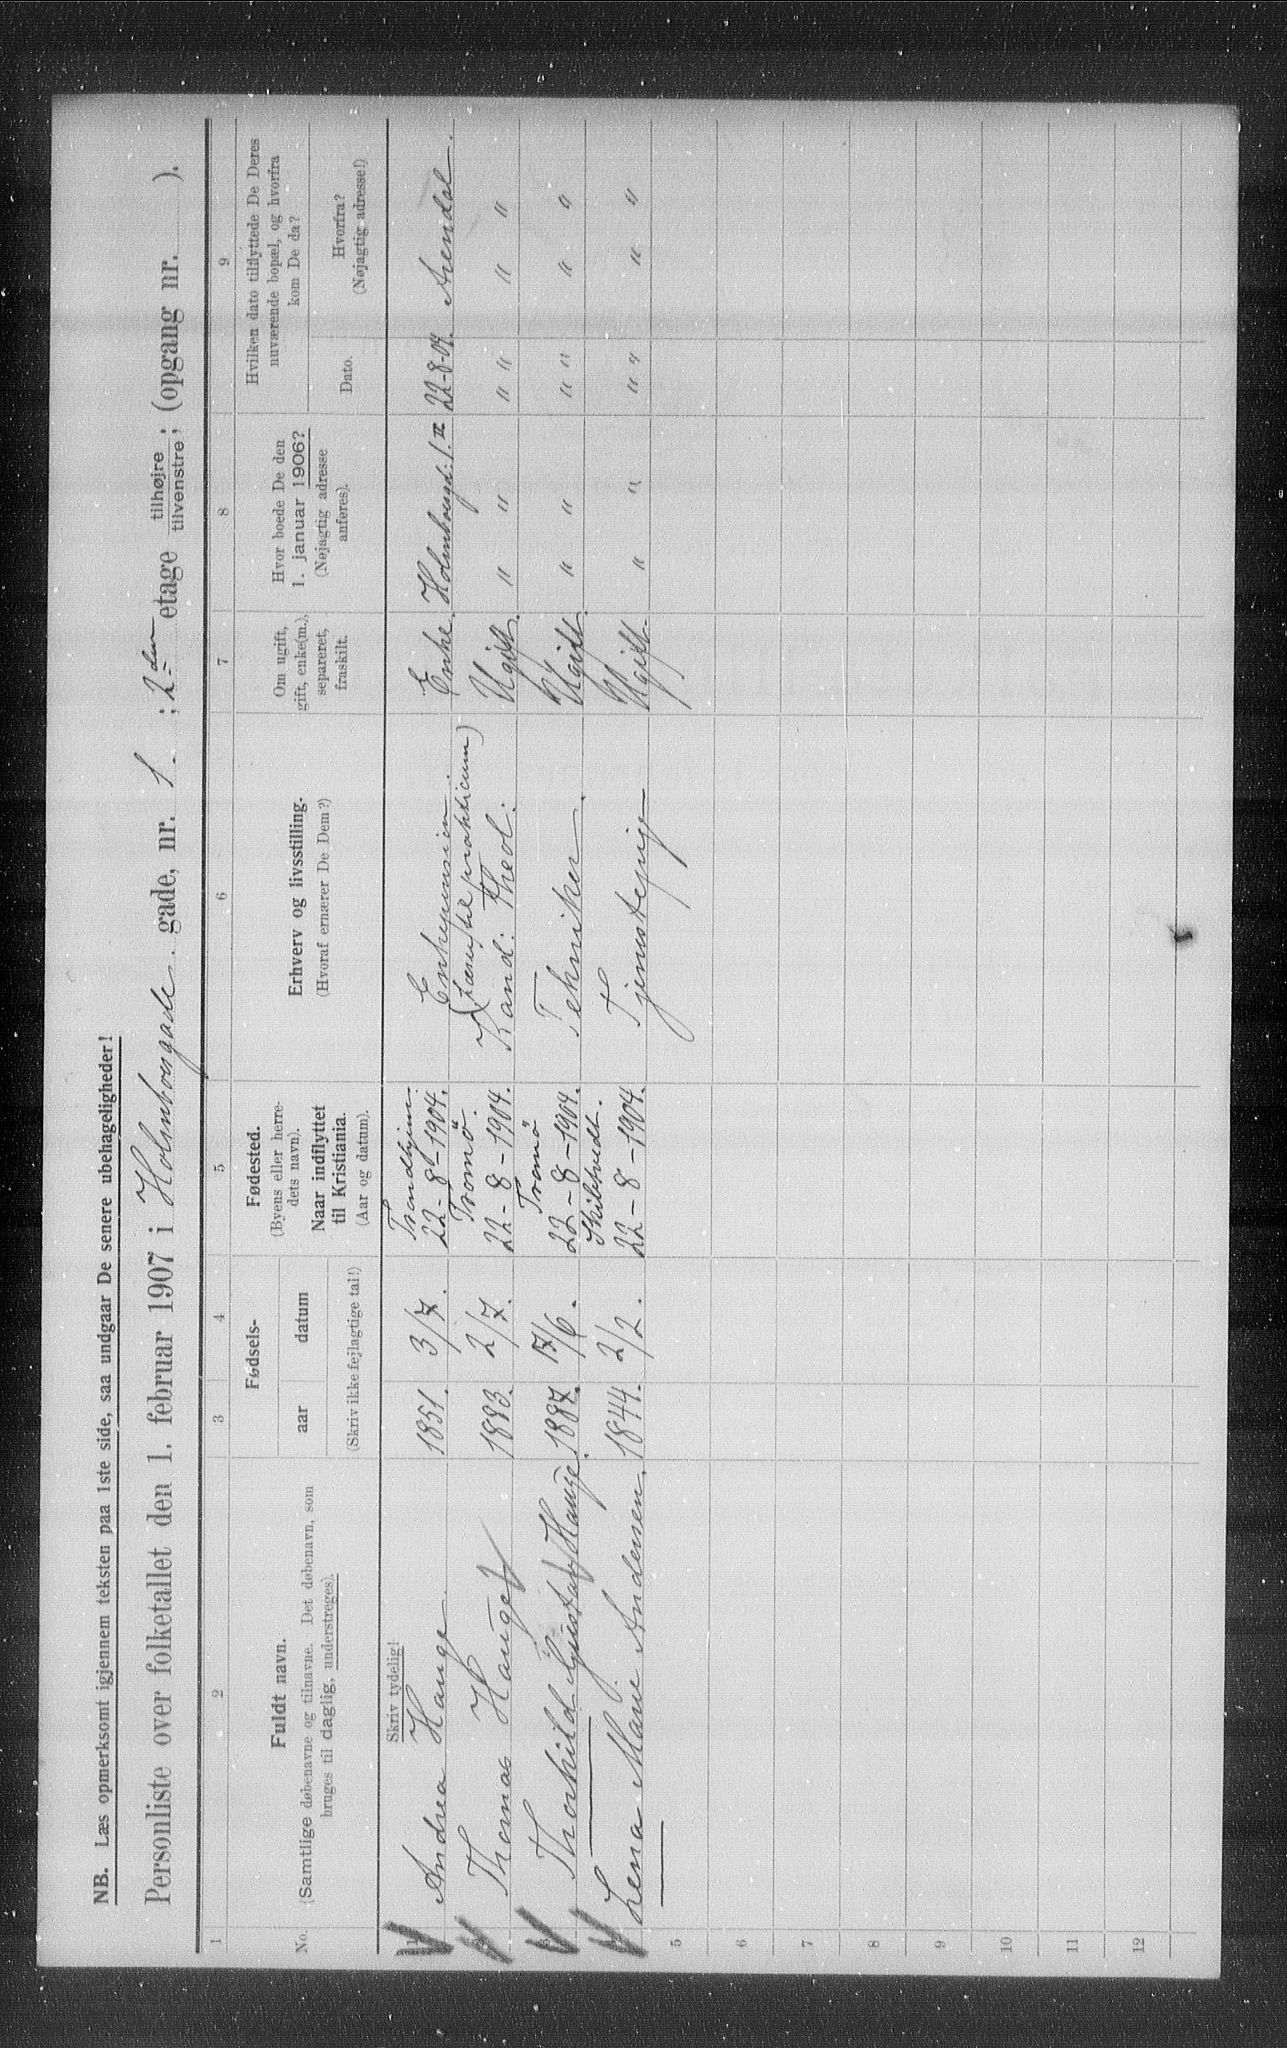 NB. Læs opmerksomt igjennem teksten paa 1ste side, saa undgaar De senere ubehageligheder!
Personliste over folketallet den 1. februar 1907 i Holmboesgade gade, nr. 1. ; 2den etage tilhøjre / tilvenstre; (opgang nr. ).
1 2 3 4 5 6 7 8 9
No.
Fuldt navn.
(Samtlige døbenavne og tilnavne. Det døbenavn, som
bruges til daglig, understreges).
Fødsels-
aar datum
(Skriv ikke fejlagtige tal!)
Fødested.
(Byens eller herre-
dets navn).
Naar indflyttet
til Kristiania.
(Aar og datum).
Erhverv og livsstilling.
(Hvoraf ernærer De Dem?)
Om ugift,
gift, enke(m.),
separeret,
fraskilt.
Hvor boede De den
1. januar 1906?
(Nøjagtig adresse
anføres).
Hvilken dato tilflyttede De Deres
nuværende bopæl, og hvorfra
kom De da?
Dato.
Hvorfra?
(Nøjagtig adresse!)
Skriv tydelig!
1 Andrea Hauge. 1851. 3/7. Trondhjem. 22-8-1904. Enkepension. Enke. Holmboesgd: 1. II 22-8-04. Arendal.
2 Thomas Hauge 1883. 2/7. Tromö. 22-8-1904. (Læser til praktikum) Kand: Theol: Ugift. " " " " " "
3 Thorkild Gustav Hauge. 1887. 17/6. Tromö 22-8-1904. Tekniker. Ugift. " " " " " "
4 Lena Marie Andersen. 1844. 2/2. 22-8-1904. Tjenstepige Ugift. " " " " " "
5
6
7
8
9
10
11
12